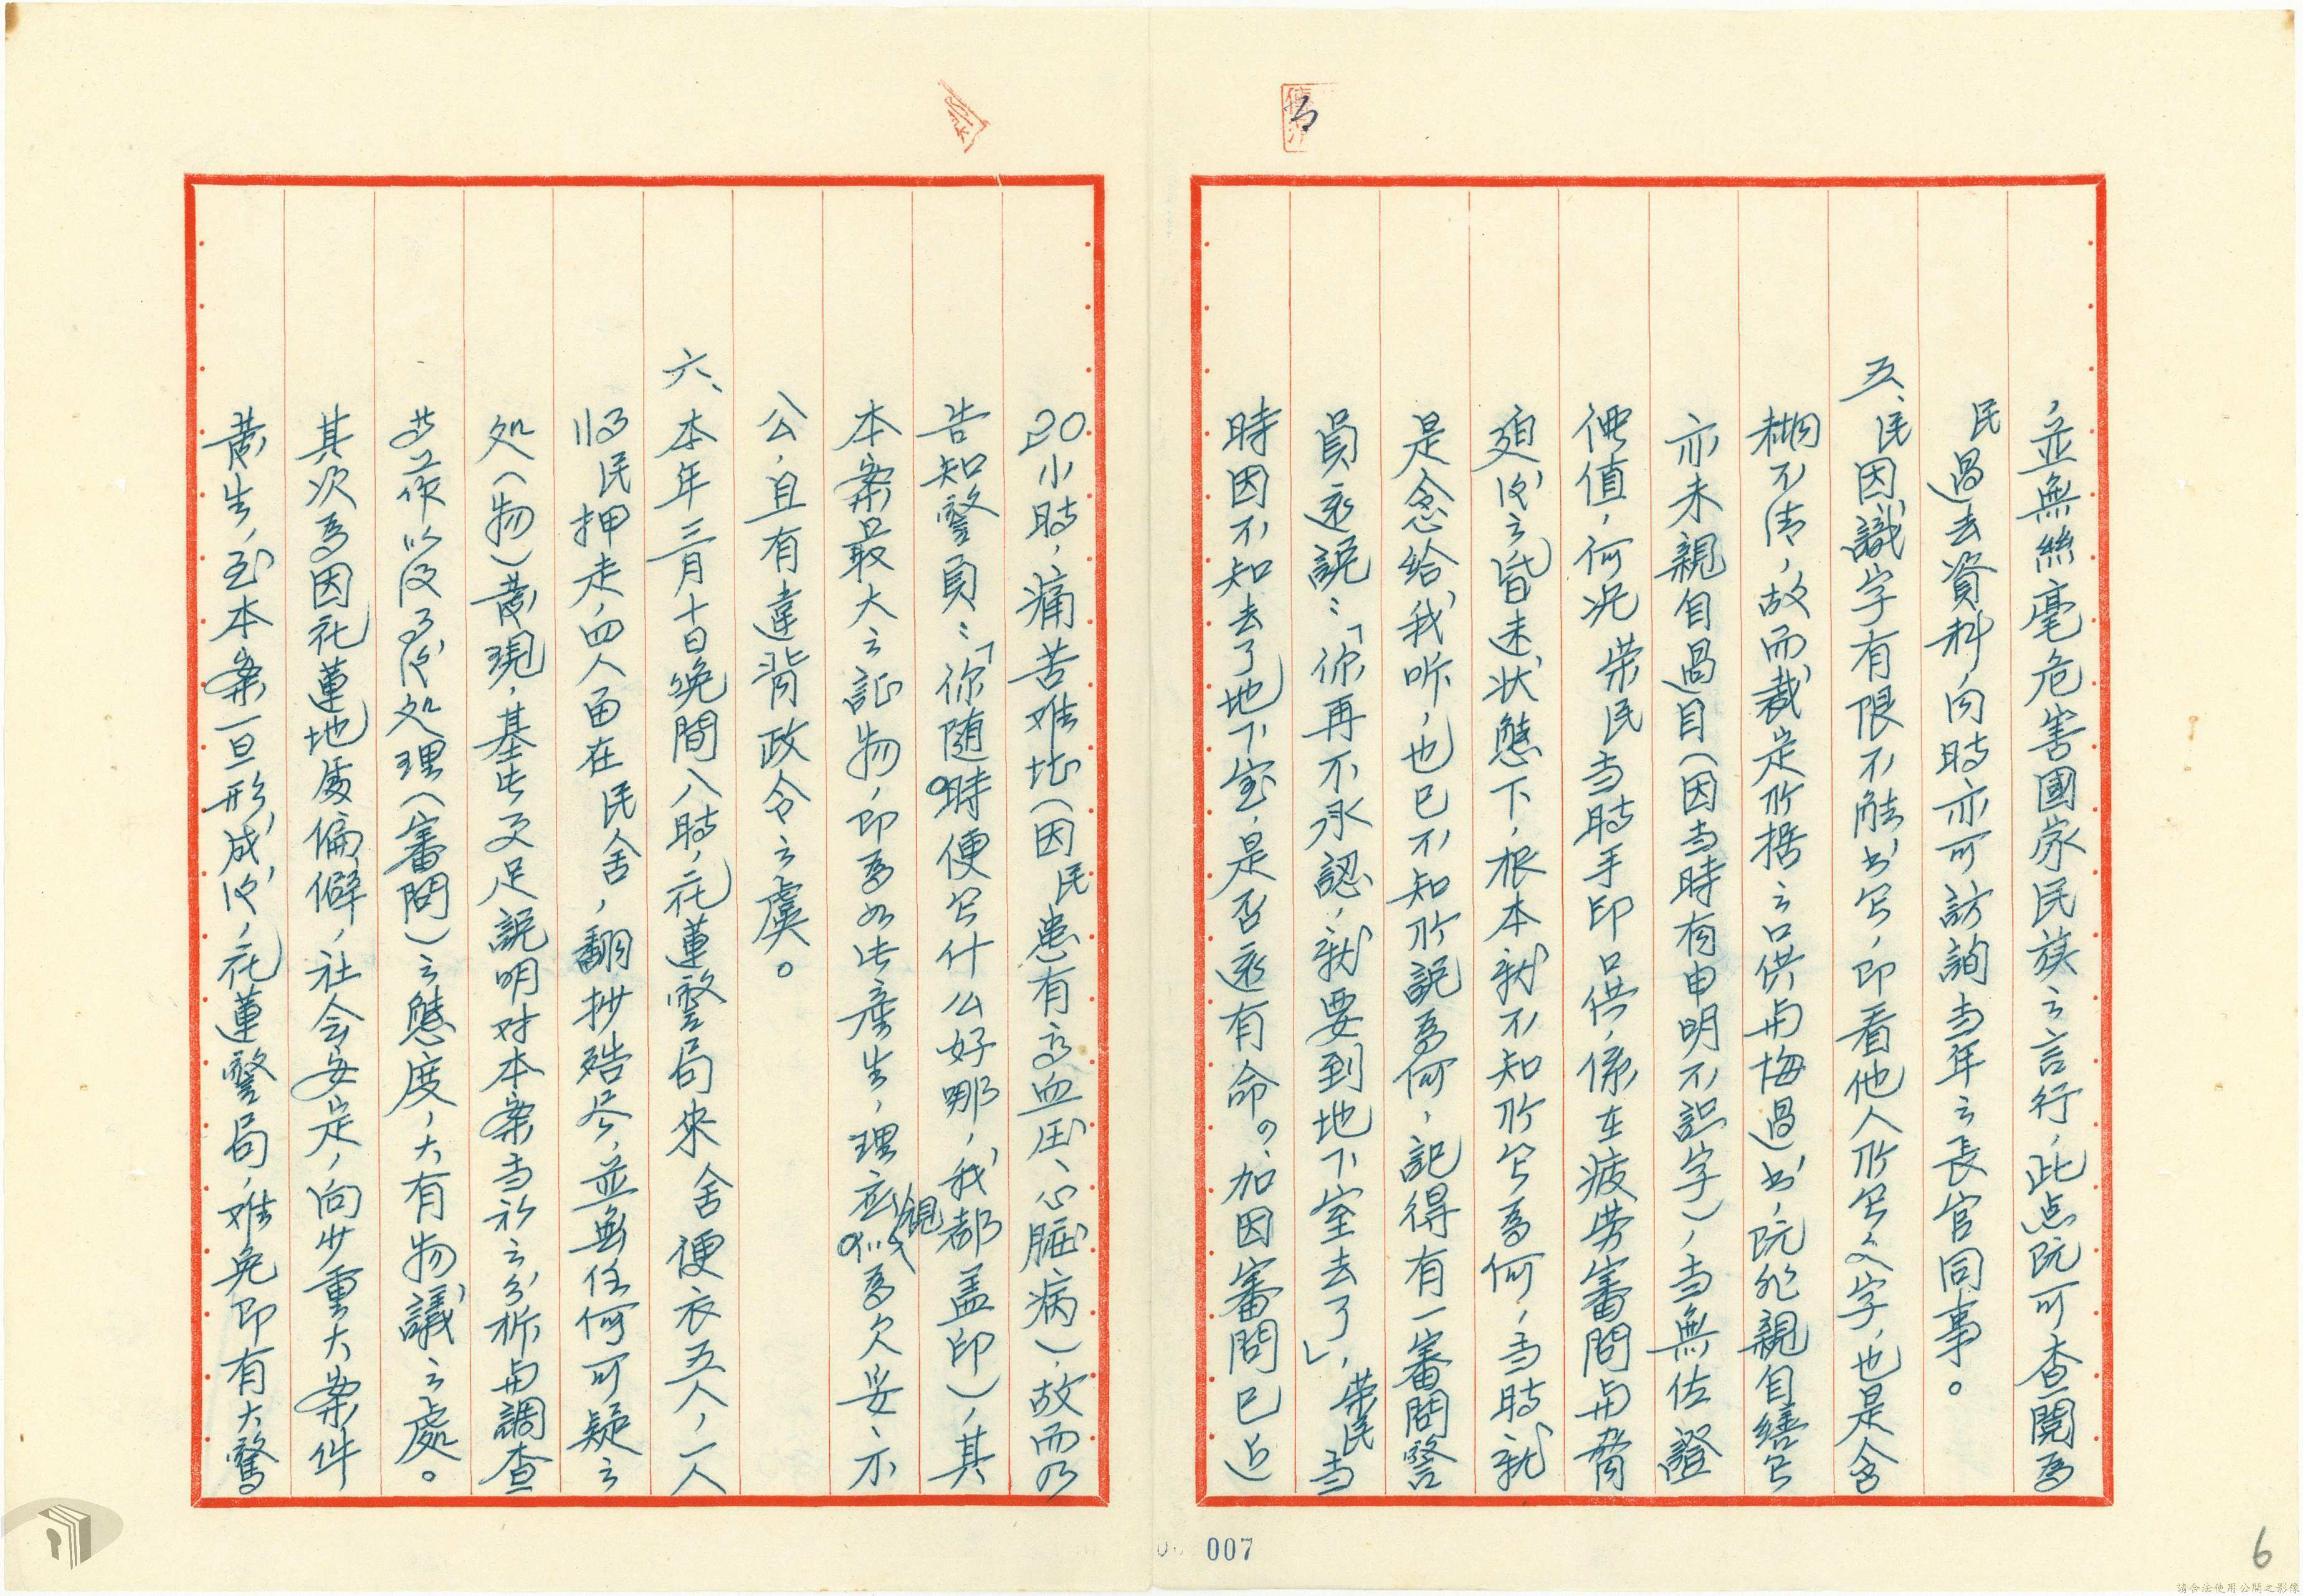 ，並無絲毫危害國家民族之言行，此点阮可查閱為
民過去資料，向時亦可訪詢当年之長官同事。
五、民因識字有限不能书写，即看他人所写文字，也是含
糊不清，故而裁定所据之口供与悔過书，阮非親自繕写
亦未親自過目（因当時有申明不識字），当無佐證
価值，何况 荣民当時手印口供，係在疲劳審問与脅
迫后之昏迷状態下，根本就不知所写為何，当時就
是念念给我听，也已不知所說為何，記得有一審問警
員还說：「你再不承認，就要到地下室去了」，荣民当
時因不知去了地下室，是否还有命。加因審問已近
20小時，痛苦难堪（因民患有高血压、心脏病），故而乃
告知警員：「你随時便写什么好哪，我都盖印），其
本案最大之証物，即為如此產生，理应視為欠妥、不
公，且有違背政令之虞。
六、本年三月十日晚間八時，花蓮警局來 舍便衣五人，一人
将民押走，四人留在民舍，翻抄殆尽，並無任何可疑之
处（物）發現，基此更足說明对本案当初之分析与調查
工作以及事后处理（審問）之態度，大有物議之處。
其次為因花蓮地處偏僻，社会安定，向少重大案件
發生，至本案一旦形成后，花蓮警局，难免即有大驚
007
6
請合法使用公開之影像